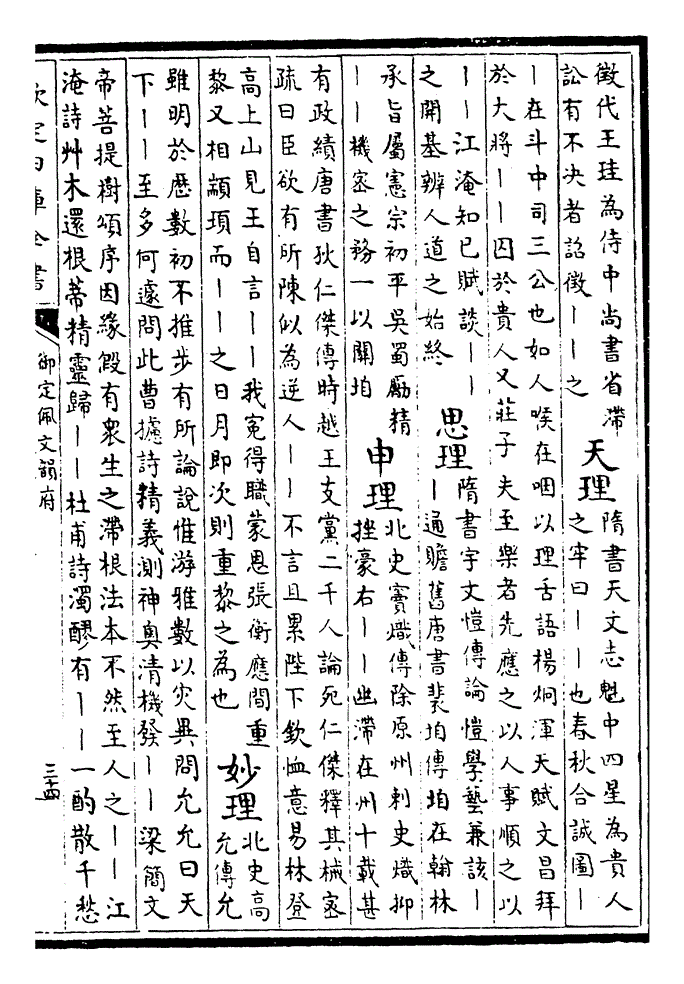 徵代王珪為侍中尚書省滯
訟有不决者詔徵｜｜之
天理
隋書天文志魁中四星為貴人
之牢曰｜｜也春秋合誠圖｜
｜在斗中司三公也如人喉在咽以理舌語楊炯渾天賦文昌拜
於大將｜｜囚於貴人又莊子夫至樂者先應之以人事順之以
｜｜江淹知己賦談｜｜
之開基辨人道之始終
思理
隋書宇文愷傳論愷學藝兼該｜
｜通贍舊唐書裴垍傳垍在翰林
承旨屬憲宗初平吳蜀勵精
｜｜機宻之務一以關垍
申理
北史竇熾傳除原州刺史熾抑
挫豪右｜｜幽滯在州十載甚
有政績唐書狄仁傑傳時越王支黨二千人論死仁傑釋其械宻
疏曰臣欲有所陳似為逆人｜｜不言且累陛下欽恤意易林登
高上山見王自言｜｜我寃得職蒙恩張衡應間重
黎又相顓頊而｜｜之日月即次則重黎之為也
妙理
北史高
允傳允
雖明於歴數初不推步有所論說惟游雅數以災異問允允曰天
下｜｜至多何遽問此曹攄詩精義測神奥清機發｜｜梁簡文
帝菩提樹頌序因緣假有衆生之滯根法本不然至人之｜｜江
淹詩艸木還根蒂精靈歸｜｜杜甫詩濁醪有｜｜一酌散千愁
欽定四庫全書
御定佩文韻府
三十四